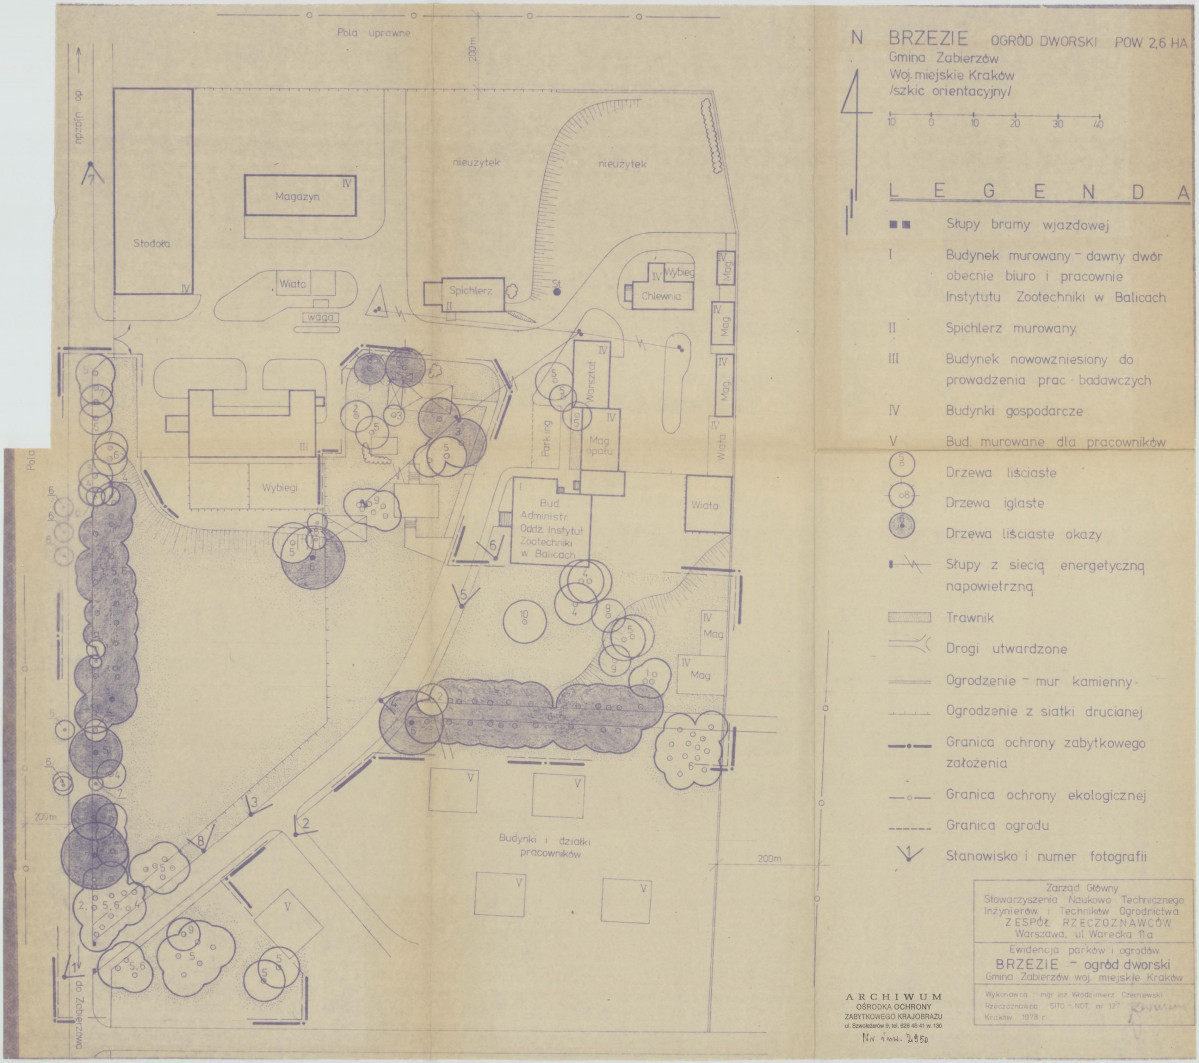 Pola uprawne
200m
N
BRZEZIE OGRÓD DWORSKI POW 2,6 HA
Gmina Zabierzów
Woj. miejskie Kraków
/szkic orientacyjny/
10 0 10 20 30 40
LEGENDA
Słupy bramy wjazdowej
I Budynek murowany - dawny dwór
obecnie biuro i pracownie
Instytutu Zootechniki w Balicach
II Spichlerz murowany
III Budynek nowowzniesiony do
prowadzenia prac badawczych
IV Budynki gospodarcze
V Bud. murowane dla pracowników
Drzewa liściaste
Drzewa iglaste
Drzewa liściaste okazy
Słupy z siecią energetyczną
napowietrzną
Trawnik
Drogi utwardzone
Ogrodzenie - mur kamienny
Ogrodzenie z siatki drucianej
Granica ochrony zabytkowego
założenia
Granica ochrony ekologicznej
Granica ogrodu
1 Stanowisko i numer fotografii
Zarząd Główny
Stowarzyszenia Naukowo Technicznego
Inżynierów i Techników Ogrodnictwa
ZESPÓŁ RZECZOZNAWCÓW
Warszawa, ul. Warecka 11a
Ewidencja parków i ogrodów
BRZEZIE - ogród dworski
Gmina Zabierzów woj. miejskie Kraków
Wykonawca mgr inż. Włodzimierz
Rzeczoznawca SITO - NOT nr 127
Kraków 1978 r.
ARCHIWUM
OŚRODKA OCHRONY
ZABYTKOWEGO KRAJOBRAZU
ul. Szwoleżerów 9, tel. 629 45 41 w. 130
Nr inw. 2950
do ujazdu
7
Stodoła
IV
Magazyn
IV
nieużytek
nieużytek
Wiata
waga
Spichlerz
II
IV
Wybieg
Chlewnia
IV
Mag.
IV
Mag.
IV
Mag.
IV
Wiata
IV
Warsztat
IV
Mag
opału
Parking
III
Wybiegi
I
Bud.
Administr.
Oddz. Instytut
Zootechniki
w Balicach
Wiata
6
5
10
IV
Mag.
IV
Mag
Pola
3
2
8
1
V
V
Budynki i działki
pracowników
V
V
V
200m
200m
do Zabierzowa